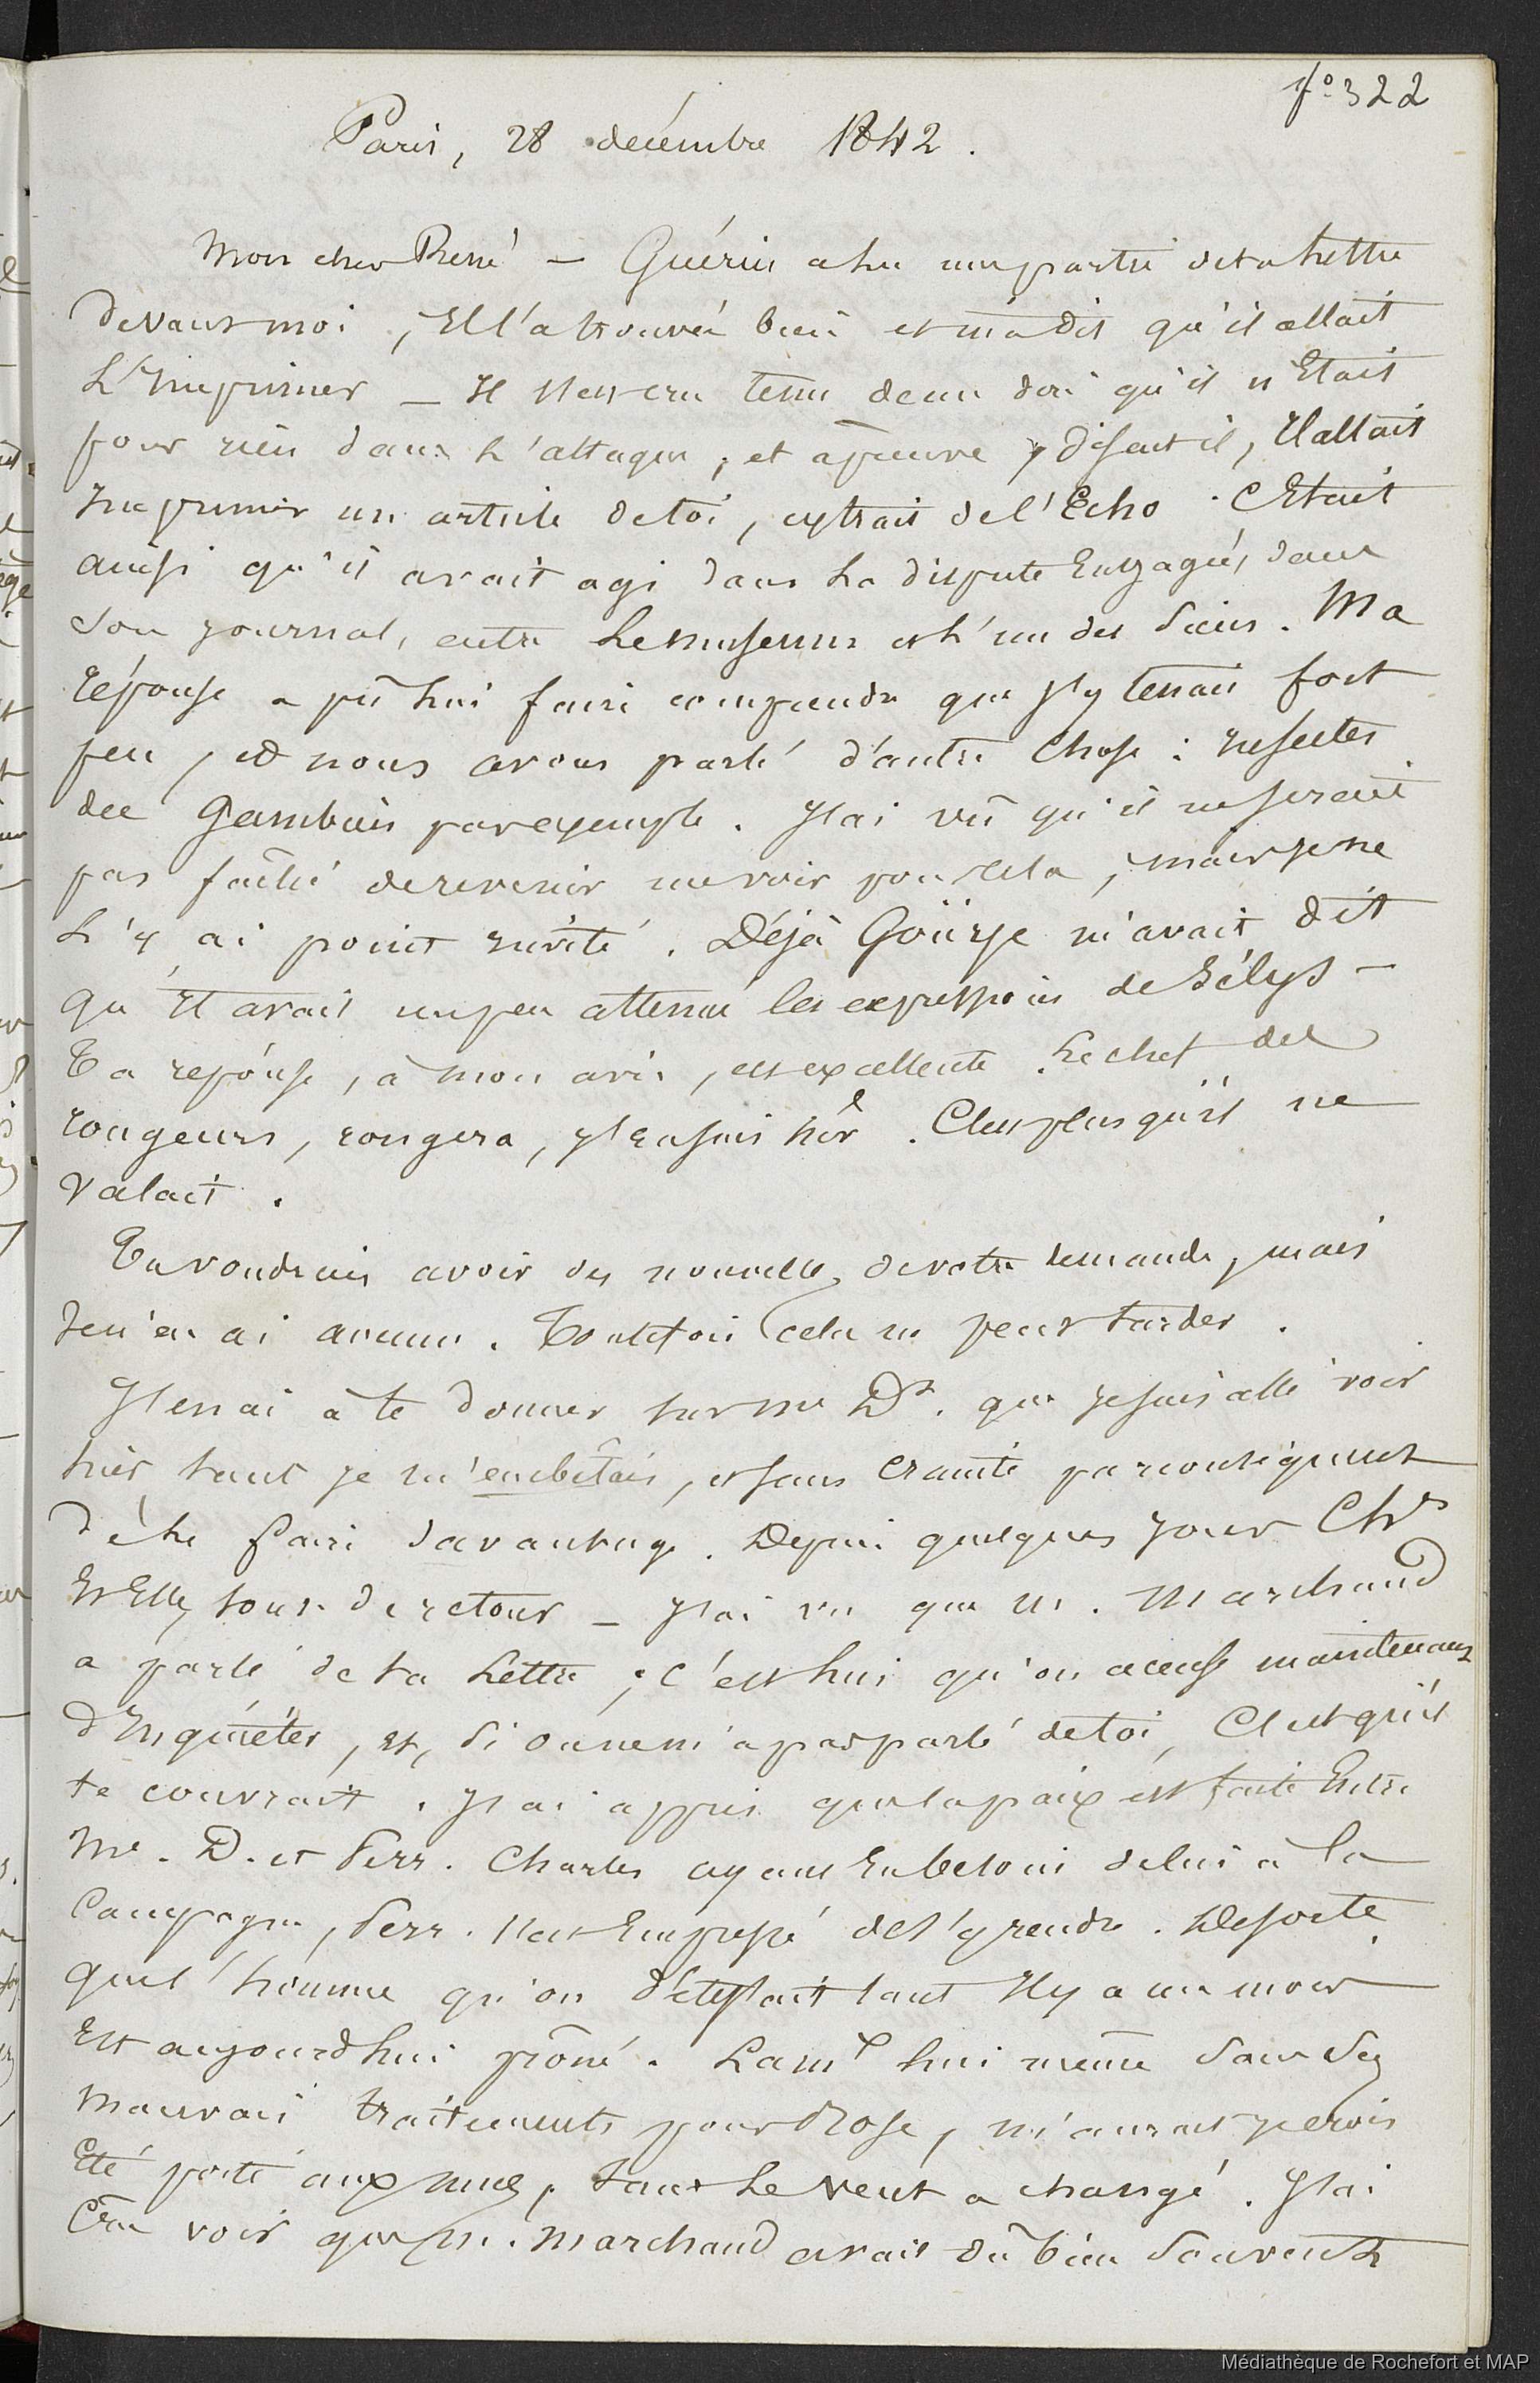 fo 322
Paris, 28 décembre 1842.
Mon cher René — Guérin a lu une partie de ta lettre
devant moi, Il l'a trouvée bien et m'a dit qu'il allait
L'Imprimer — Il s'est cru tenu de me dire qu'il n'Etait
pour rien dans L'attaque, et à preuve, disait il, Il allait
Imprimer un article de toi, extrait de l'Echo. C'Etait
ainsi qu'il avait agi dans La dispute Engagée, dans
son journal, entre Le museum et L'un des siens. Ma
réponse a pû Lui faire comprendre que J'y tenais fort
peu, et nous avons parlé d'autre chose : Insectes
de Gambier par exemple. J'ai vû qu'il ne serait
pas fâché de revenir me voir pour cela, mais Je ne
L'y ai point Invité. Déjà Goürye m'avait dit
qu'Il avait un peu attenué les expressions de Sélys —
Ta reponse, à mon avis, est excellente. Le chef des
rongeurs, rongera, J'en suis sûr. C'est plus qu'il ne
valait.
Tu voudrais avoir des nouvelles de votre demande, mais
Je n'en ai aucune. Toutefois cela ne peut tarder.
J'en ai à te donner sur me Ds. que Je suis allé voir
hier tant Je m'embêtais, et sans Crainte par conséquent
d'être faire davantage. Depuis quelques Jours Chs
Et Elle sont de retour — J'ai vu que m. Marchand
a parlé de ta Lettre ; c'est Lui qu'on accuse maintenant
d'Inquiéter, et, si on ne m'a pas parlé de toi, C'est qu'il
te couvrait. J'ai appris que la paix est faite Entre
Me. D. et Serr. Charles ayant Eu besoin de lui à la
Campagne, Serr. s'est Empressé de s'y rendre. De sorte
que l'homme qu'on détestait tant Il y a un mois
Est aujourdhui prôné. Lamx Lui même sans ses
mauvais traitements pour Rose, m'aurait Je crois
Eté porté aux nues, tant Le vent a changé. J'ai
Cru voir que m. Marchand avait dû bien souvent
Médiathèque de Rochefort et MAP